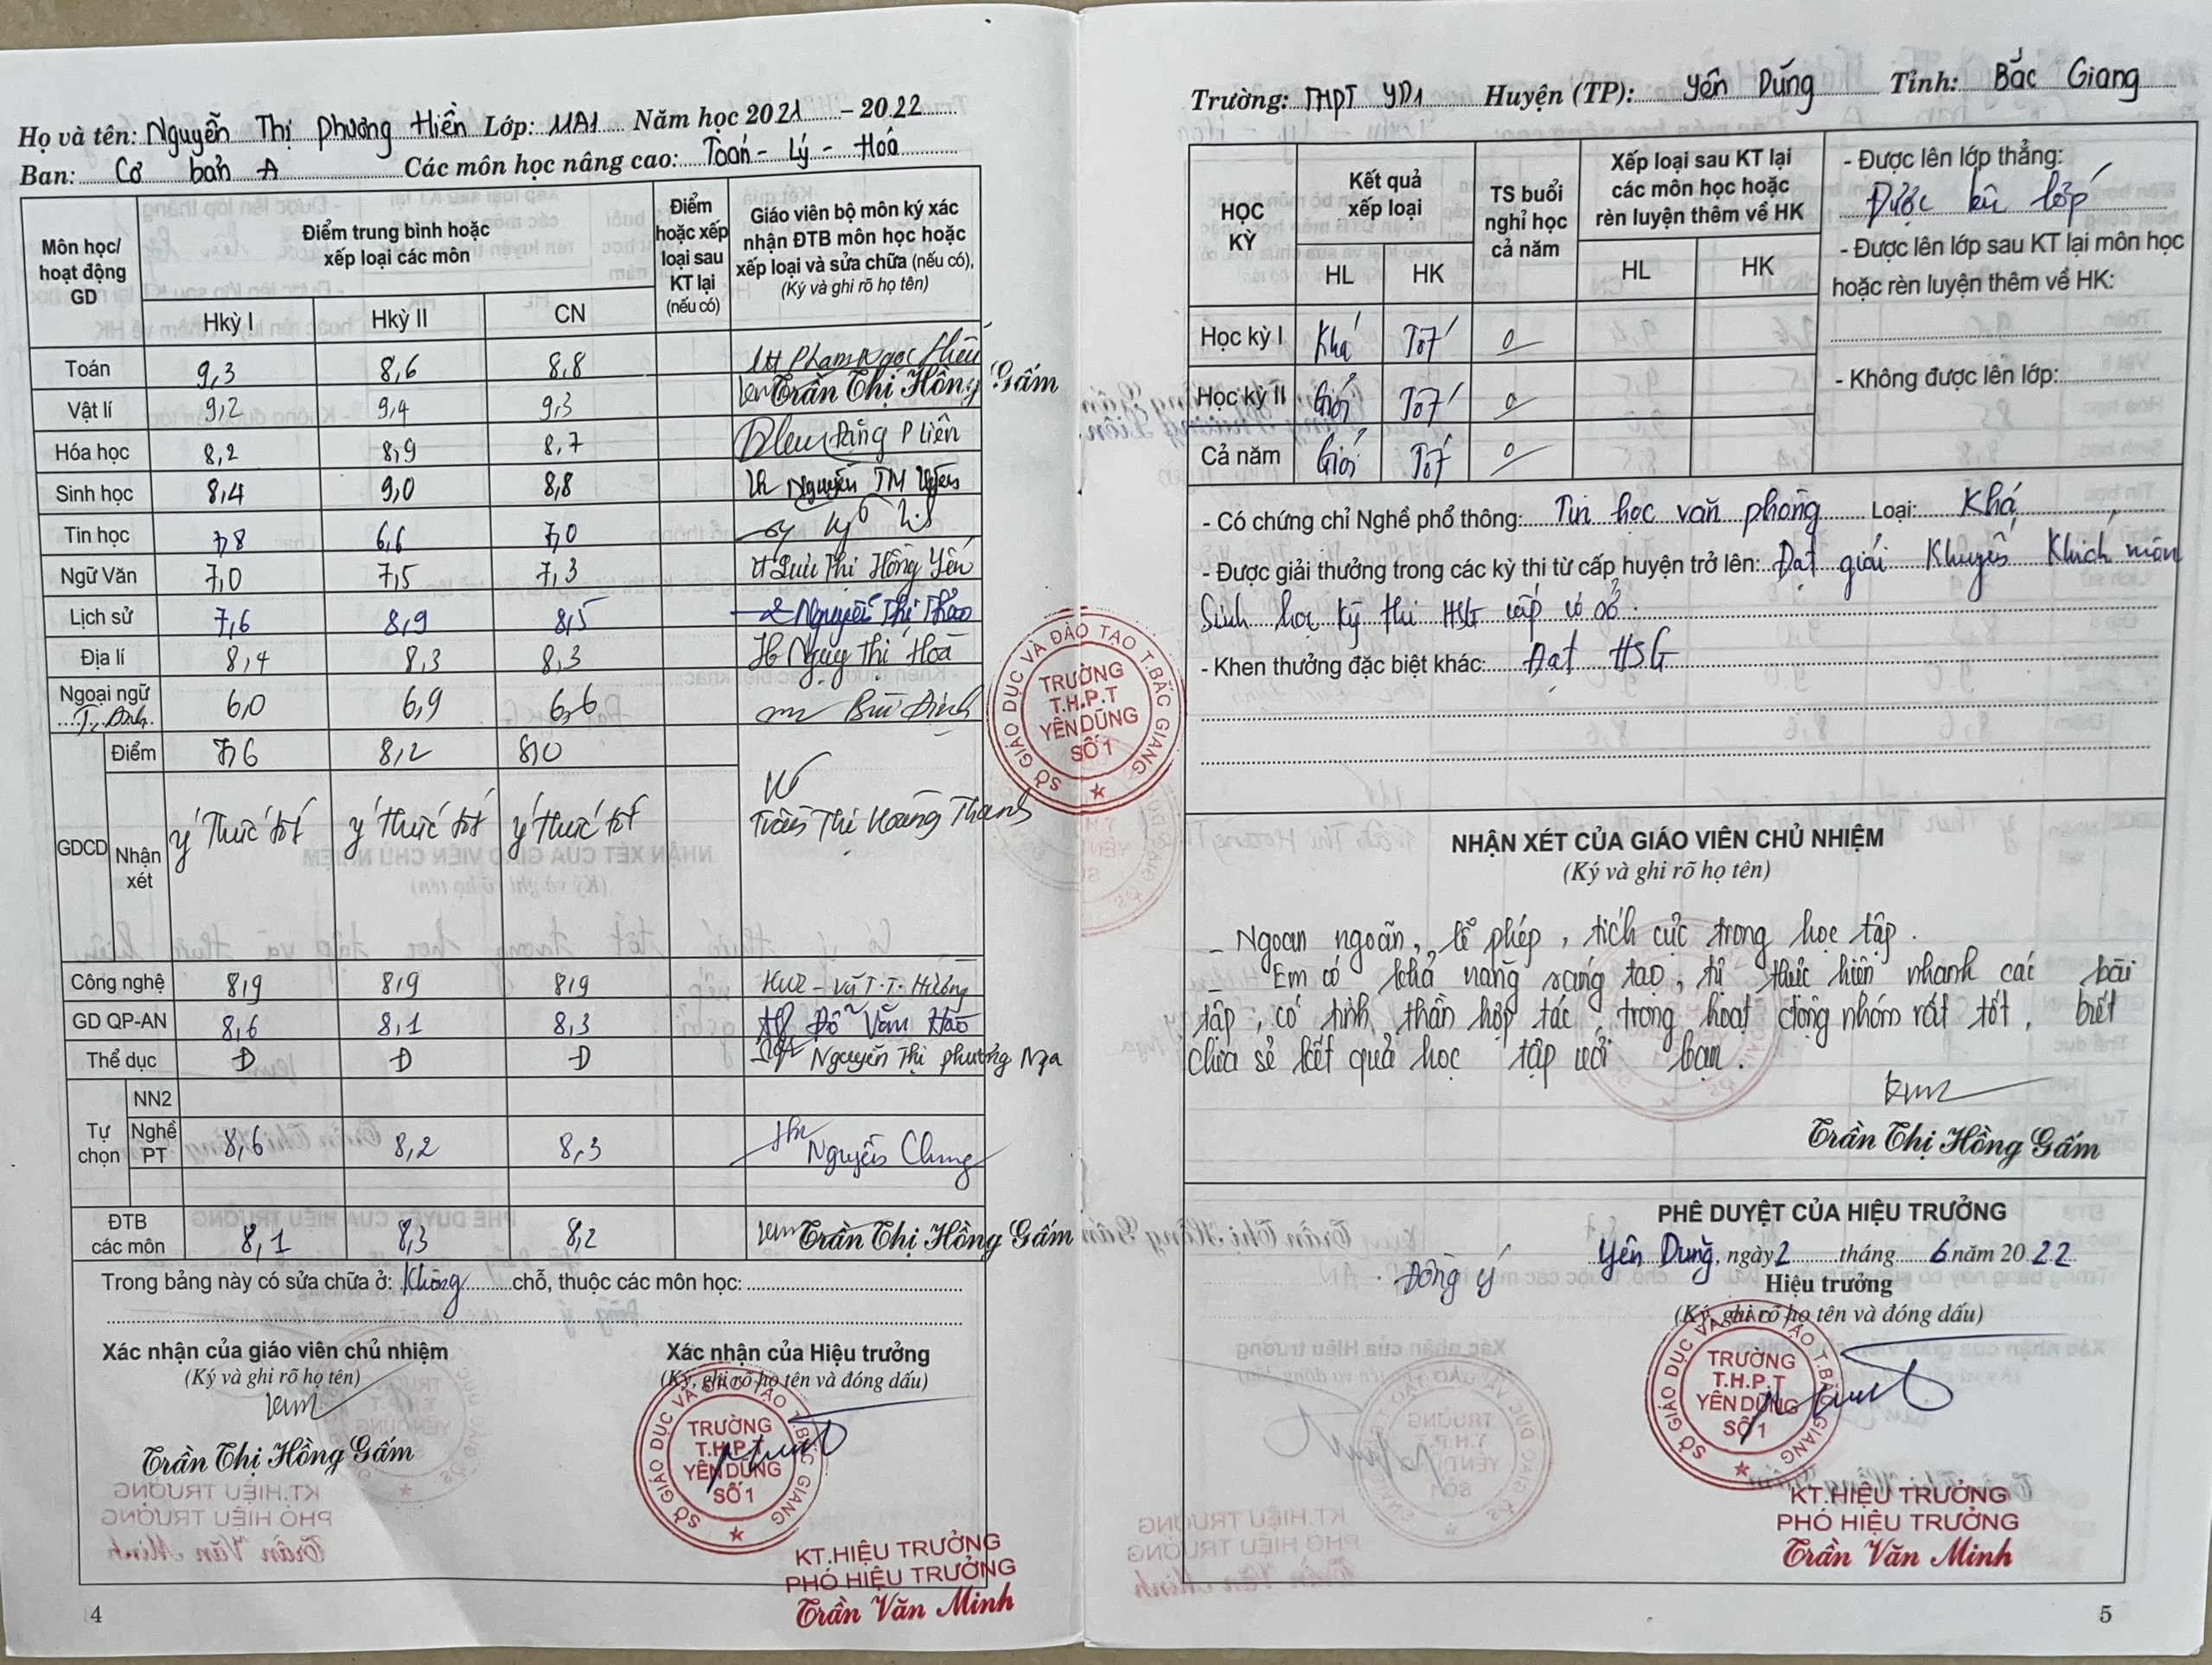 Họ và tên: Nguyễn Thị Phương Hiền Lớp: 11A1 Năm học 2021 – 2022
Ban: Cơ bản A Các môn học nâng cao: Toán - Lý - Hoá
Môn học/ hoạt động GD
Điểm trung bình hoặc xếp loại các môn
Hkỳ I Hkỳ II CN
Điểm hoặc xếp loại sau KT lại (nếu có)
Giáo viên bộ môn ký xác nhận ĐTB môn học hoặc xếp loại và sửa chữa (nếu có), (Ký và ghi rõ họ tên)
Toán 9,3 8,6 8,8 Phạm Ngọc Hiếu
Vật lí 9,2 9,4 9,3 Trần Thị Hồng Gấm
Hóa học 8,2 8,9 8,7 Đặng P Liên
Sinh học 8,4 9,0 8,8 Nguyễn TM
Tin học 7,8 6,6 7,0
Ngữ Văn 7,0 7,5 7,3 Lưu Thị Hồng Yến
Lịch sử 7,6 8,9 8,5 Nguyễn Thị Thảo
Địa lí 8,4 8,3 8,3 Ngụy Thị Hoà
Ngoại ngữ T. Anh 6,0 6,9 6,6 Bùi Định
GDCD
Điểm 7,6 8,2 8,0
Nhận xét Ý thức tốt Ý thức tốt Ý thức tốt Trần Thị Hoàng Thanh
Công nghệ 8,9 8,9 8,9 Vũ T.T. Hường
GD QP-AN 8,6 8,1 8,3 Đỗ Văn Hào
Thể dục Đ Đ Đ Nguyễn Thị Phương Nga
Tự chọn
NN2
Nghề PT 8,6 8,2 8,3 Nguyễn Chung
ĐTB các môn 8,1 8,3 8,2 Trần Thị Hồng Gấm
Trong bảng này có sửa chữa ở: Không chỗ, thuộc các môn học:
Xác nhận của giáo viên chủ nhiệm
(Ký và ghi rõ họ tên)
Trần Thị Hồng Gấm
Xác nhận của Hiệu trưởng
(Ký, ghi rõ họ tên và đóng dấu)
SỞ GIÁO DỤC VÀ ĐÀO TẠO T.BẮC GIANG
TRƯỜNG
T.H.P.T
YÊN DŨNG
SỐ 1
KT.HIỆU TRƯỞNG
PHÓ HIỆU TRƯỞNG
Trần Văn Minh
4
Trường: THPT YD1 Huyện (TP): Yên Dũng Tỉnh: Bắc Giang
HỌC KỲ
Kết quả xếp loại
TS buổi nghỉ học cả năm
Xếp loại sau KT lại các môn học hoặc rèn luyện thêm về HK
HL HK HL HK
Học kỳ I Khá Tốt 0
Học kỳ II Giỏi Tốt 0
Cả năm Giỏi Tốt 0
- Được lên lớp thẳng:
Được lên lớp
- Được lên lớp sau KT lại môn học
hoặc rèn luyện thêm về HK:
- Không được lên lớp:
- Có chứng chỉ Nghề phổ thông: Tin học văn phòng Loại: Khá
- Được giải thưởng trong các kỳ thi từ cấp huyện trở lên: Đạt giải Khuyến Khích môn
Sinh học kỳ thi HSG cấp cơ sở.
- Khen thưởng đặc biệt khác: Đạt HSG
SỞ GIÁO DỤC VÀ ĐÀO TẠO T.BẮC GIANG
TRƯỜNG
T.H.P.T
YÊN DŨNG
SỐ 1
NHẬN XÉT CỦA GIÁO VIÊN CHỦ NHIỆM
(Ký và ghi rõ họ tên)
- Ngoan ngoãn, lễ phép, tích cực trong học tập.
- Em có khả năng sáng tạo, tự thực hiện nhanh các bài
tập, có tinh thần hợp tác trong hoạt động nhóm rất tốt, biết
chia sẻ kết quả học tập với bạn.
Trần Thị Hồng Gấm
PHÊ DUYỆT CỦA HIỆU TRƯỞNG
Đồng ý
Yên Dũng, ngày 2 tháng 6 năm 2022
Hiệu trưởng
(Ký, ghi rõ họ tên và đóng dấu)
SỞ GIÁO DỤC VÀ ĐÀO TẠO T.BẮC GIANG
TRƯỜNG
T.H.P.T
YÊN DŨNG
SỐ 1
KT.HIỆU TRƯỞNG
PHÓ HIỆU TRƯỞNG
Trần Văn Minh
5